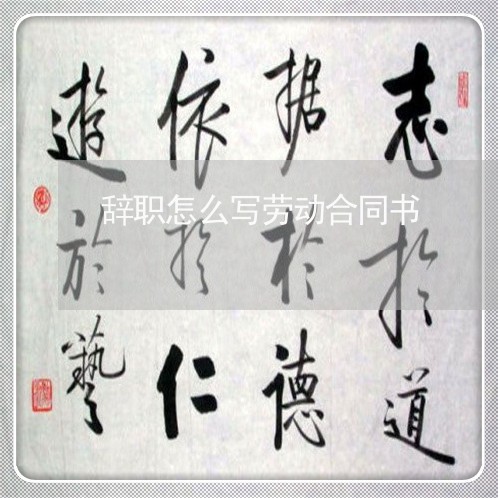 辞职怎么写劳动合同书
志於道
据於德
依於仁
遊於藝